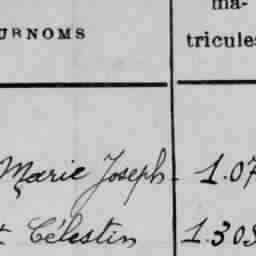 URNOMS
ma-
tricules
Marie Joseph 1.07
Célestin 1.308